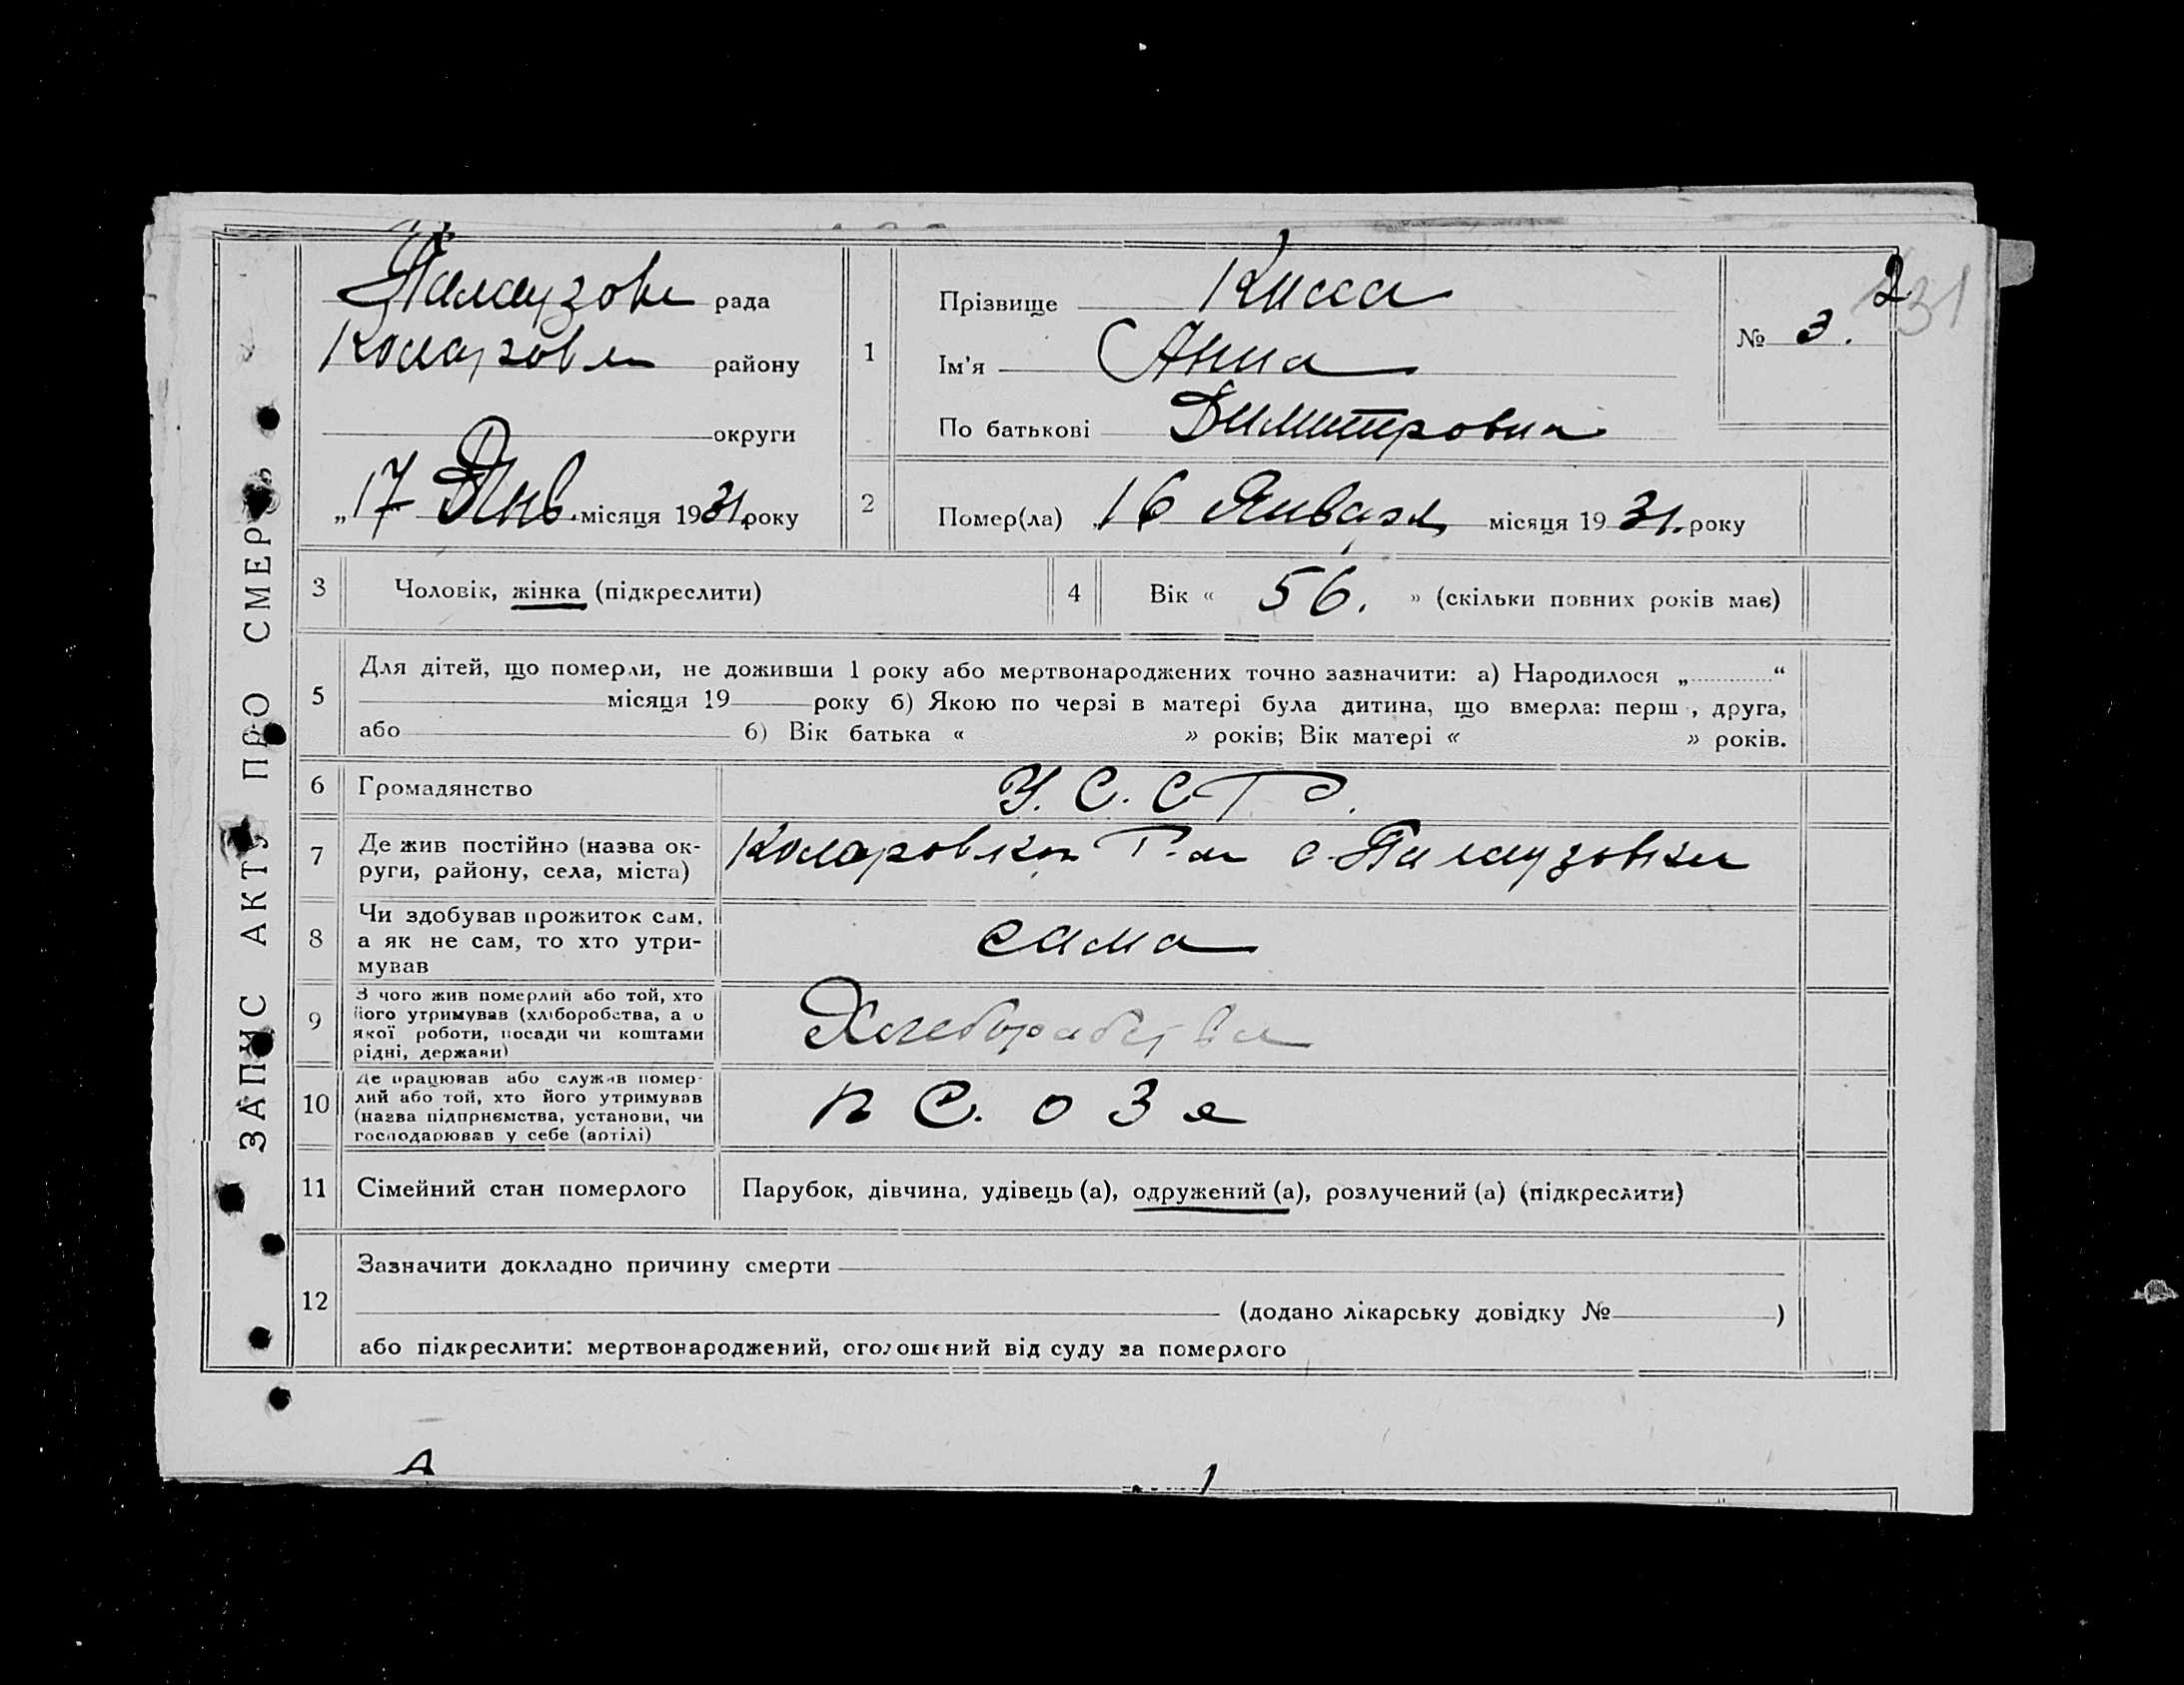 ЗАПИС АКТУ ПРО СМЕР
Палаузов рада
району
округи
„17 Янв. місяця 1931. року
1
Прізвище Кисса
Ім'я Анна
По батькові Димитровна
№ 3.
2
31
2
Помер(ла) „16 Января місяця 19 31. року
3 Чоловік, жінка (підкреслити)
4 Вік « 56. » (скільки повних років має)
5
Для дітей, що померли, не доживши 1 року або мертвонароджених точно зазначити: а) Народилося „ “
місяця 19 року б) Якою по черзі в матері була дитина, що вмерла: перш , друга,
або б) Вік батька « » років; Вік матері « » років.
6 Громадянство У. С. С Р.
7
Де жив постійно (назва ок-
руги, району, села, міста)
Коларовкой Р. с. Палаузовка
8
Чи здобував прожиток сам,
а як не сам, то хто утри-
мував
сама
9
З чого жив померлий або той, хто
його утримував (хліборобства, а о
якої роботи, посади чи коштами
рідні, держави)
Хлеборобства
10
Де працював або служив помер-
лий або той, хто його утримував
(назва підприємства, установи, чи
господарював у себе (артілі)
С. О З е
11 Сімейний стан померлого
Парубок, дівчина, удівець (а), одружений (а), розлучений (а) (підкреслити)
12
Зазначити докладно причину смерти
(додано лікарську довідку № )
або підкреслити: мертвонароджений, оголошений від суду за померлого